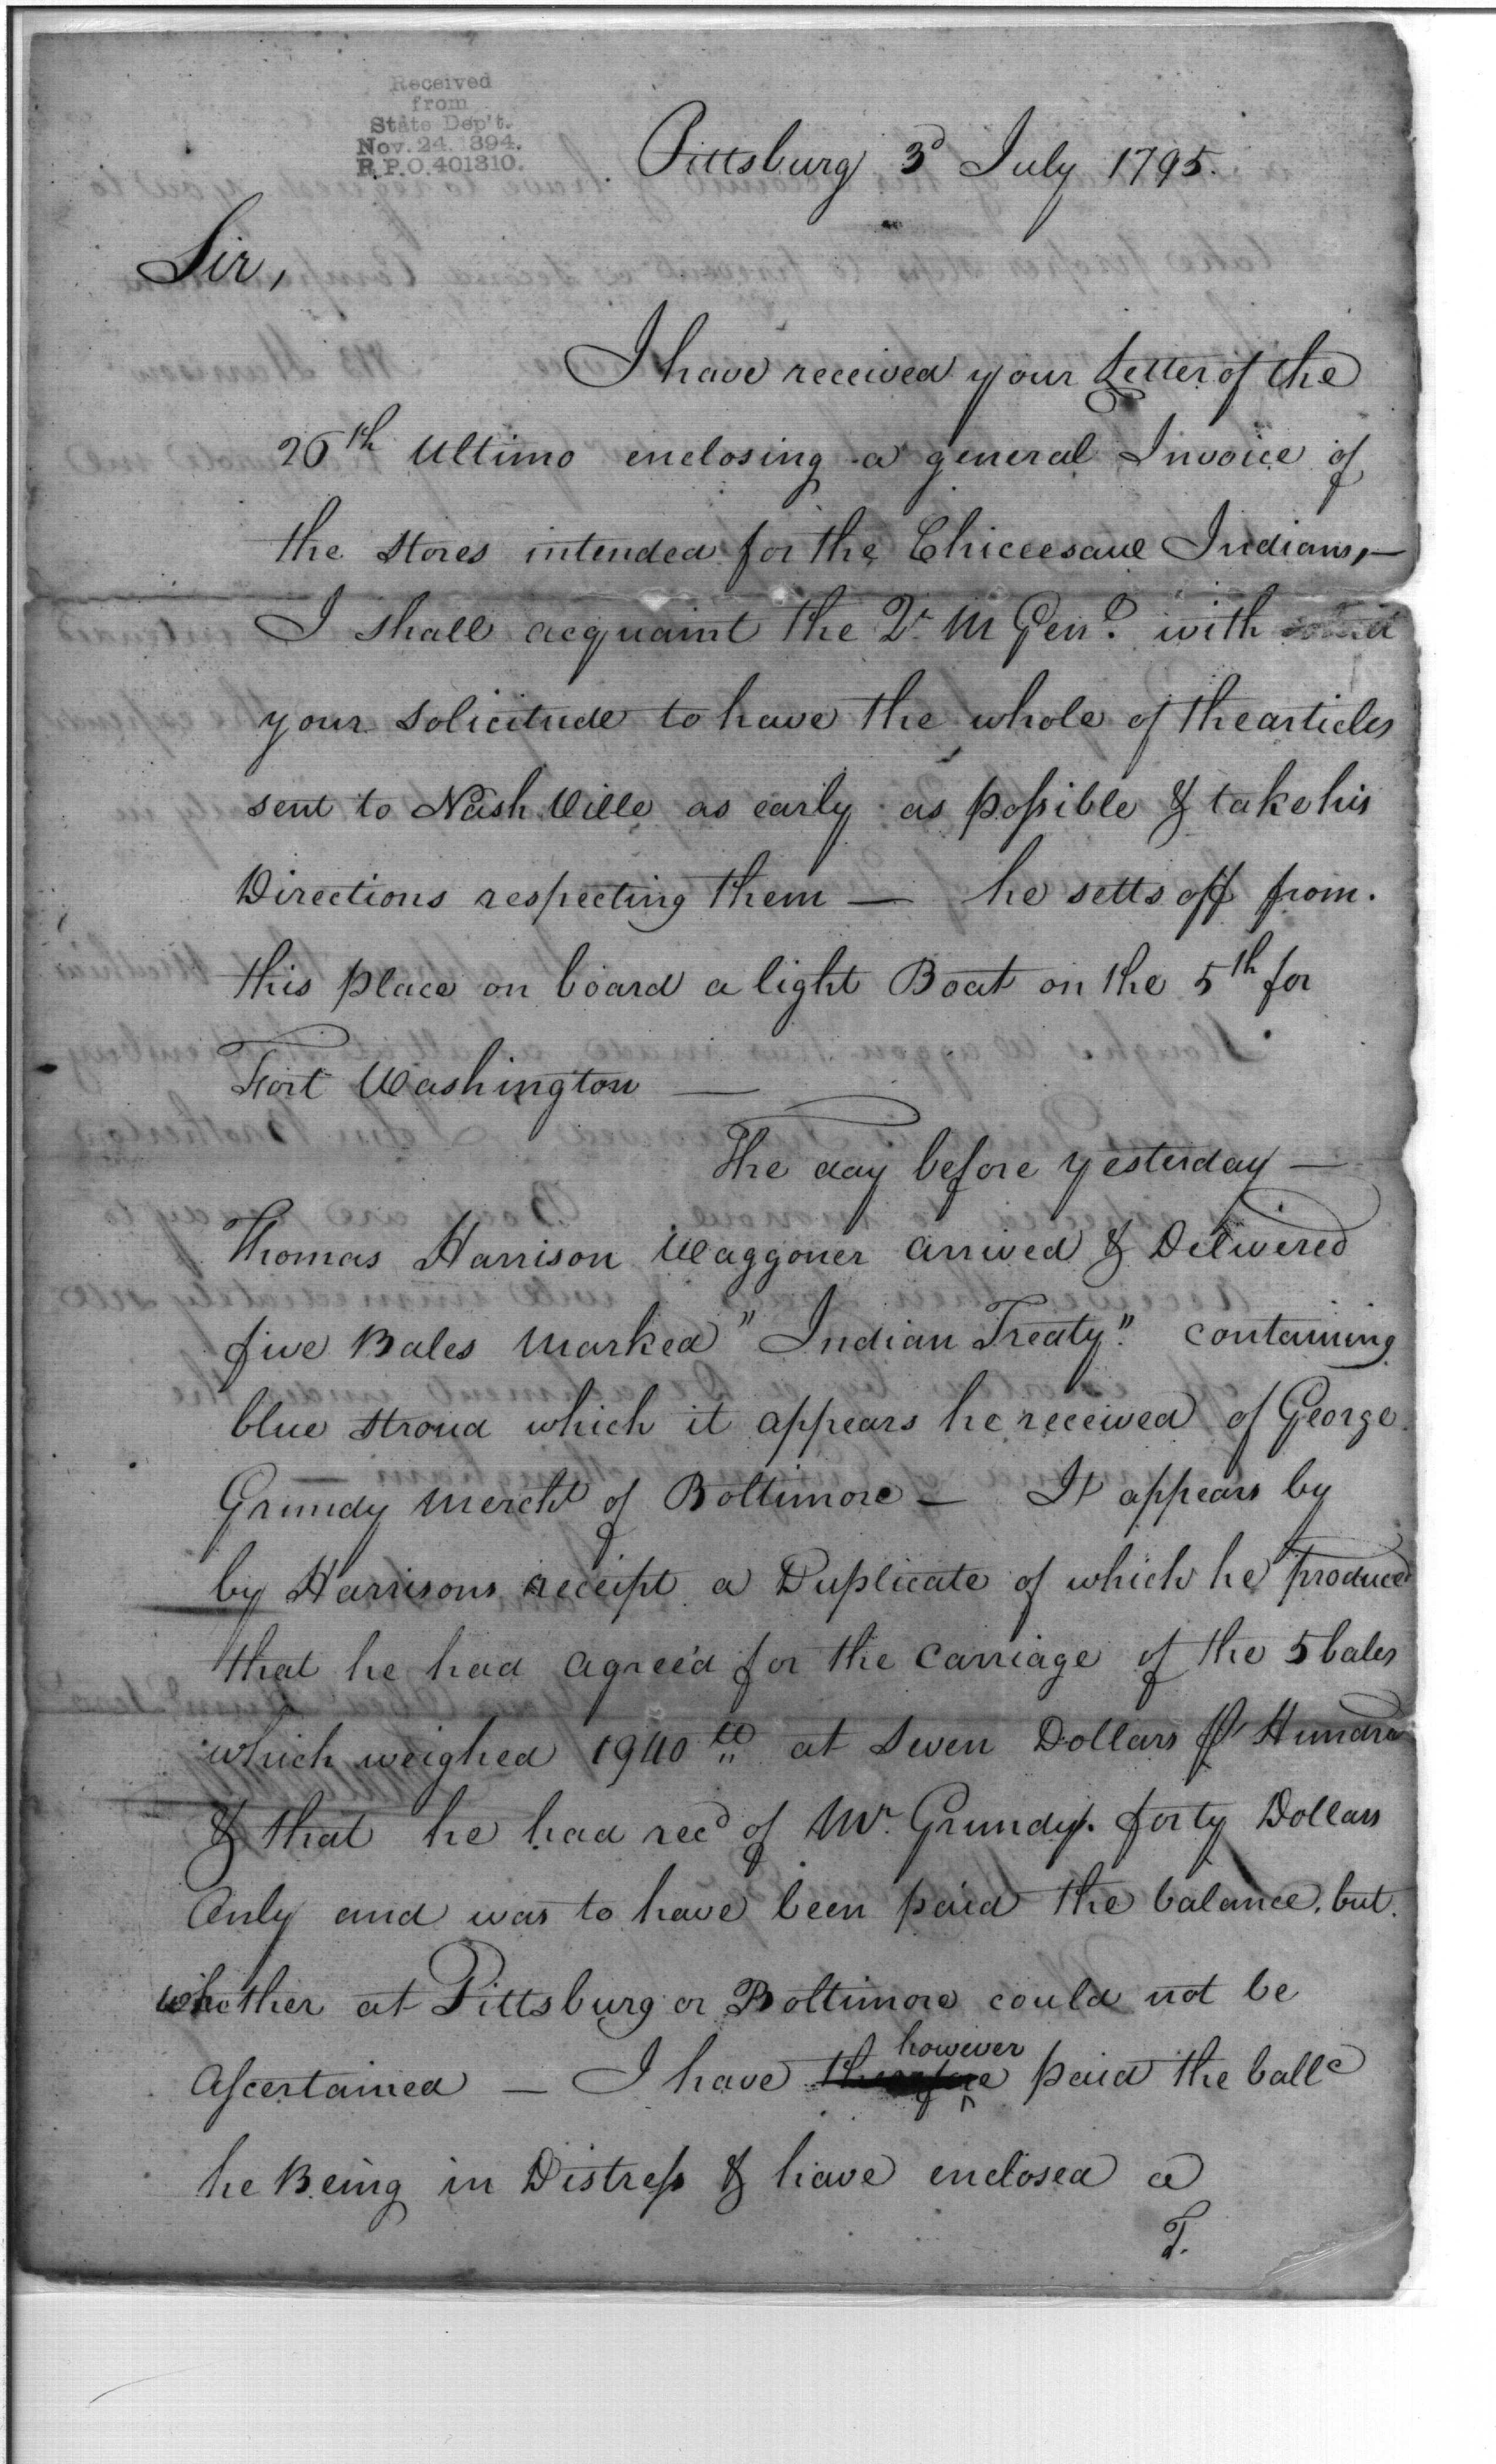 Received
from
State Dep't.
Nov. 24. 1894.
R.P.O. 401310.
Pittsburg 3d July 1795.
Sir,
I have received your Letter of the
26th Ultimo enclosing a general Invoice of
the stores intended for the Chiccesaue Indians, —
I shall acquaint the Qr M Genl. with
your solicitude to have the whole of the articles
sent to Nash Ville as early as possible & take his
Directions respecting them — he setts off from.
this place on board a light Boat on the 5th for
Fort Washington —
The day before yesterday —
Thomas Harrison Waggoner arrived & Delivered
five Bales marked "Indian Treaty". containing
blue stroud which it appears he received of George
Grundy Mercht of Boltimore — It appears by
by Harrisons receipt a Duplicate of which he produced
that he had agree'd for the carriage of the 5 bales
which weighed 1940 lb at Seven Dollars pr Hundred
& that he had recd of Mr. Grundy. forty Dollars
Only and was to have been paid the balance, but.
whether at Pittsburg or Boltimore could not be
Ascertained — I have therefore however paid the ballc
he Being in Distress & have enclosed a
T.